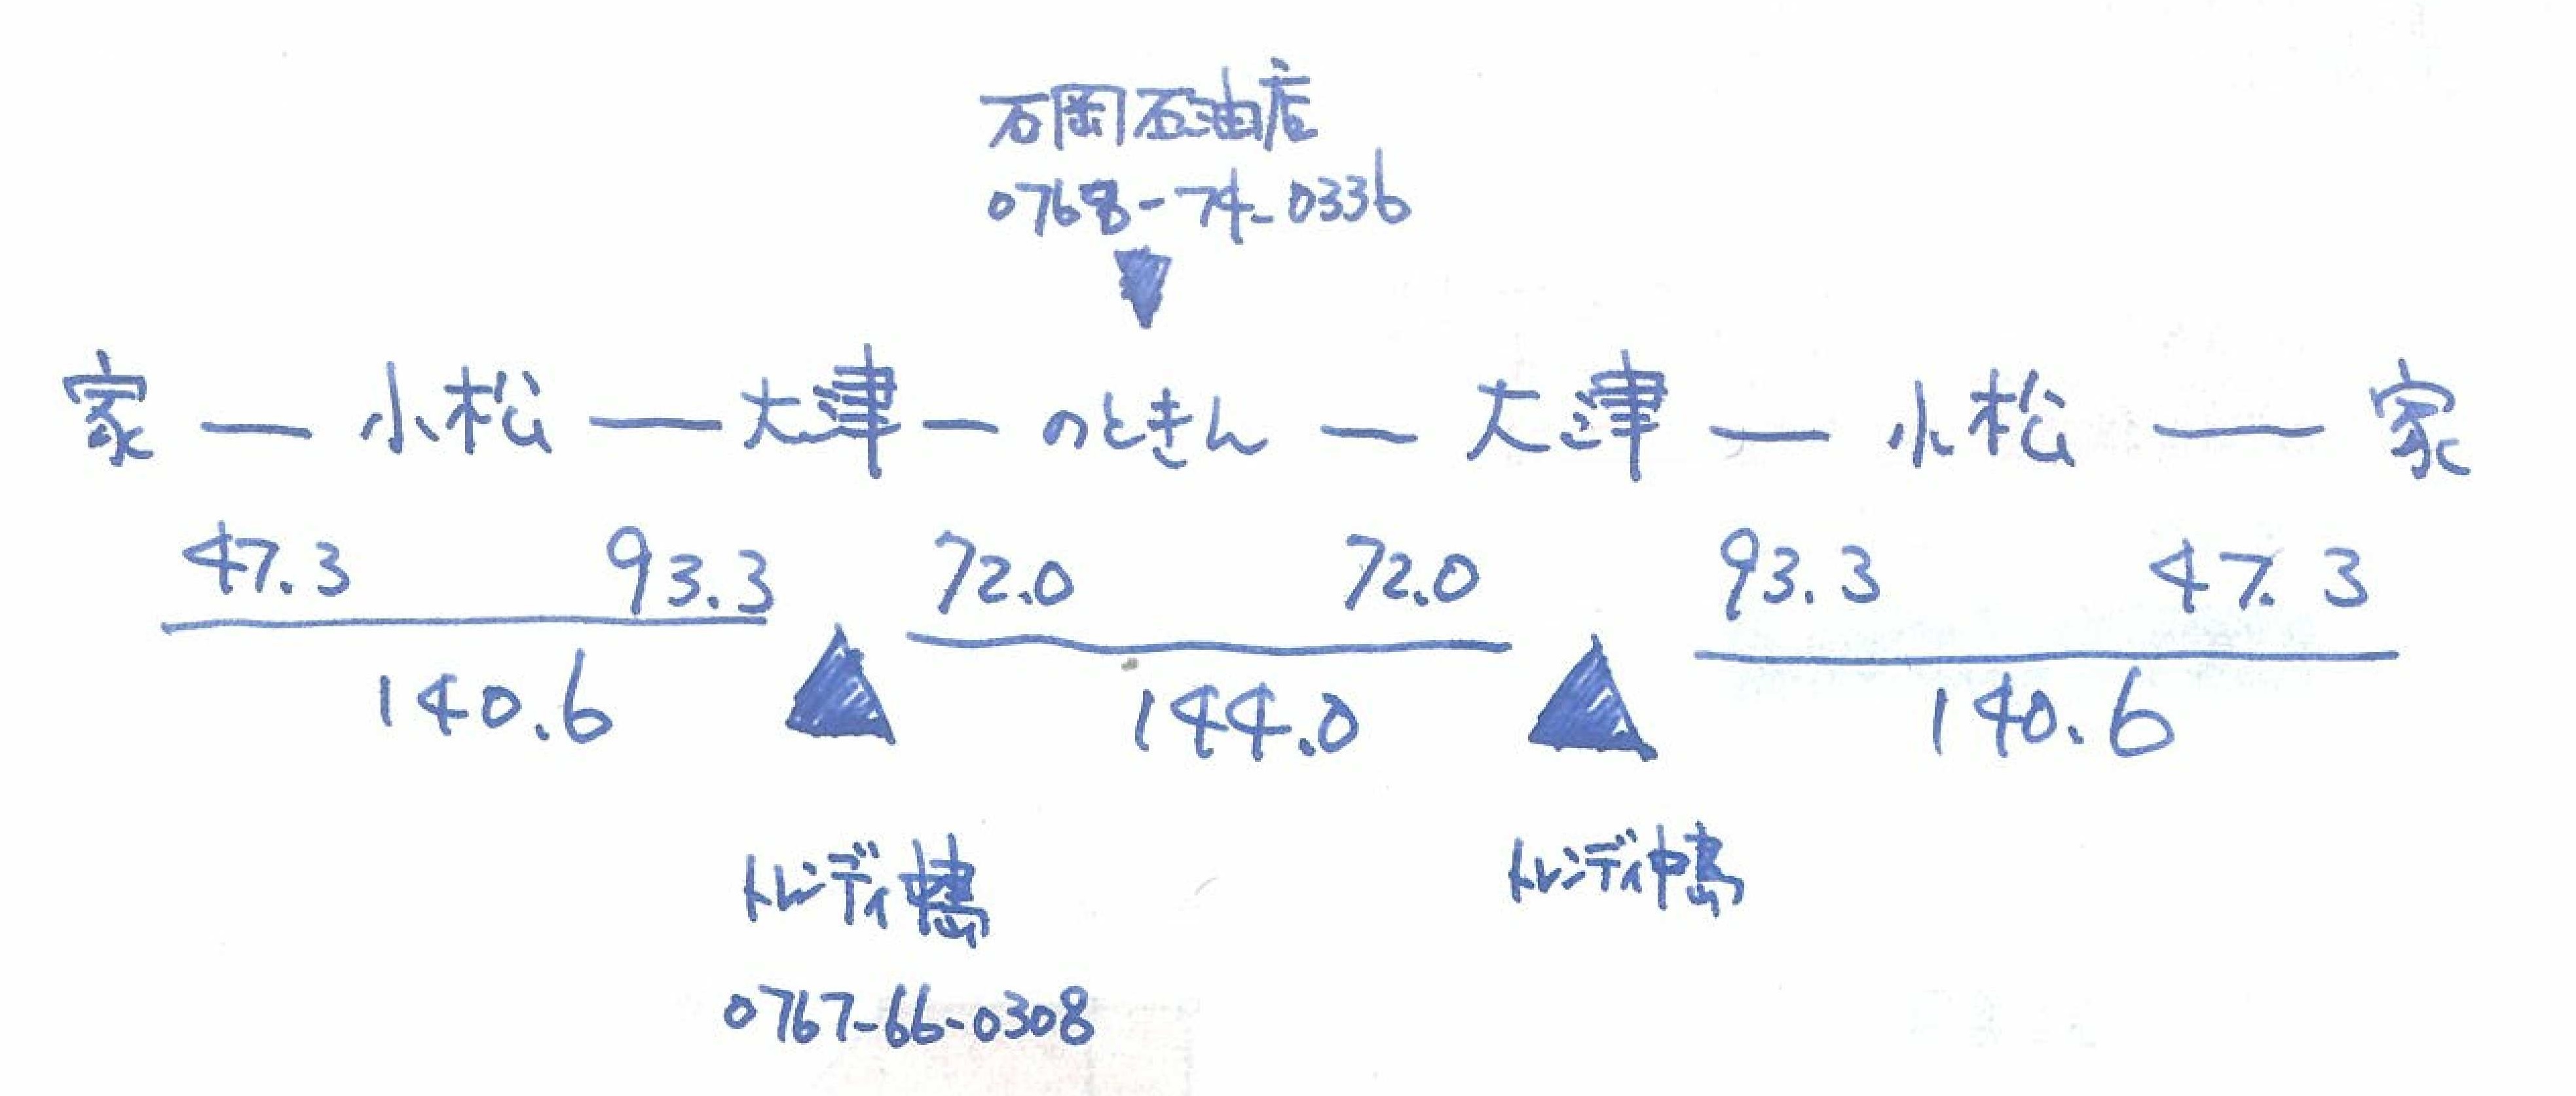 石岡石油店
0768-74-0336
家 — 小松 — 大津 — のときん — 大津 — 小松 — 家
47.3 93.3 72.0 72.0 93.3 47.3
140.6 144.0 140.6
トレンディ中島 トレンディ中島
0767-66-0308